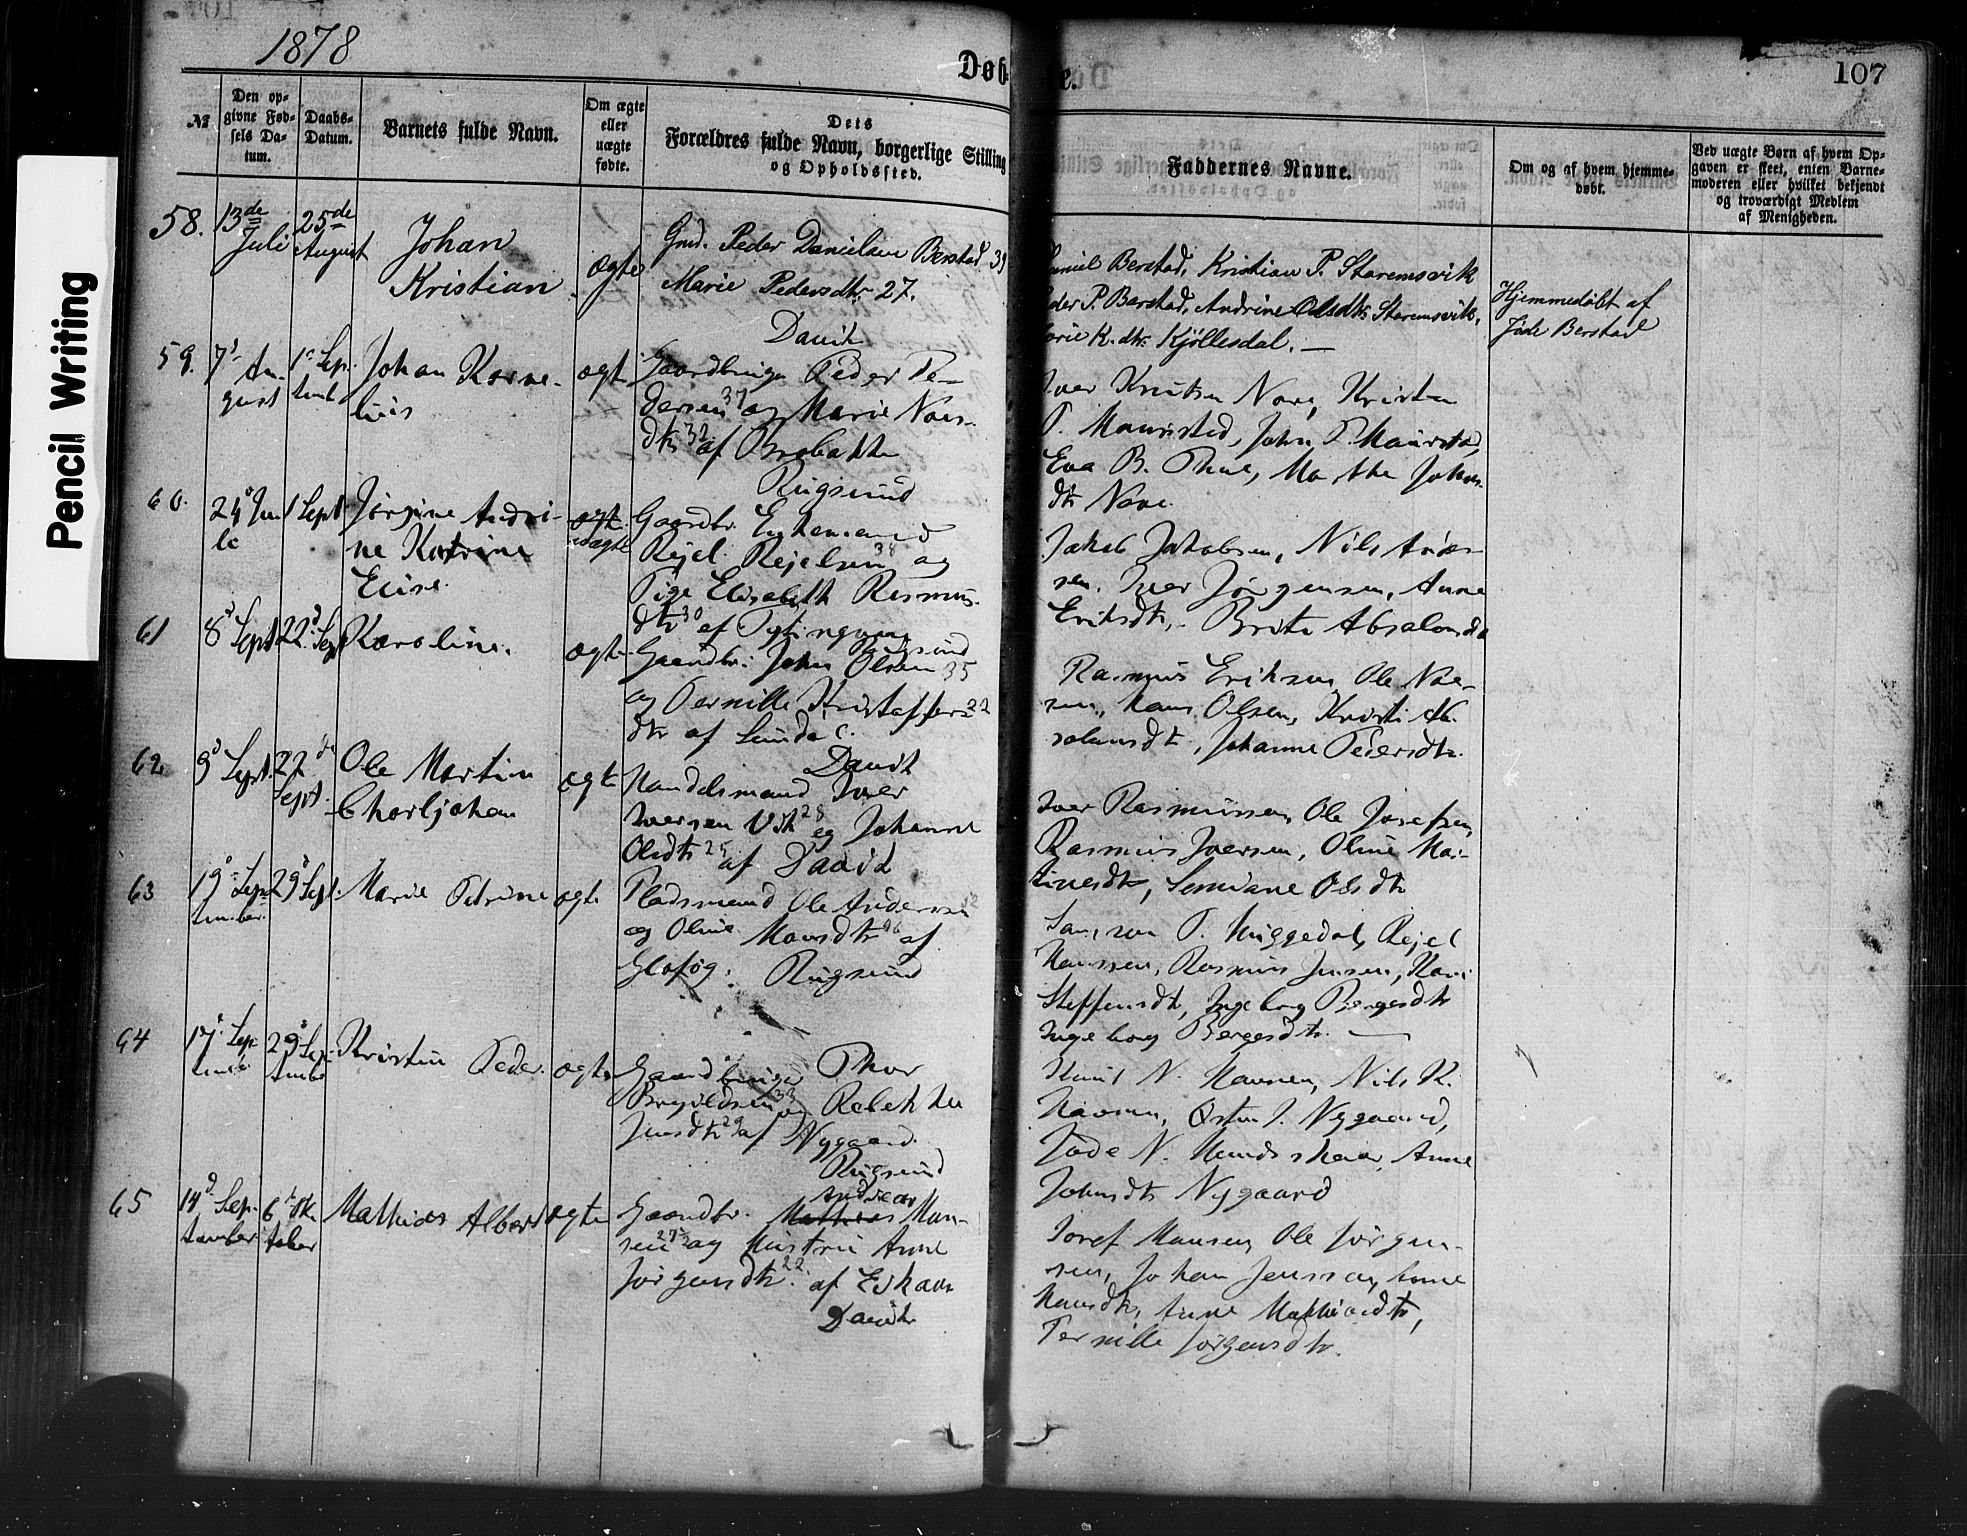 1878
Døbte.
107
Pencil Writing
№
Den op-
givne Fød-
sels Da-
tum.
Daabs-
Datum.
Barnets fulde Navn.
Om ægte
eller
uægte
fødte.
Dets
Forældres fulde Navn, borgerlige Stilling
og Opholdssted.
Faddernes Navne.
Om og af hvem hjemme-
døbt.
Ved uægte Børn af hvem Op-
gaven er skeet, enten Barne-
moderen eller hvilket bekjendt
og troværdigt Medlem
af Menigheden.
58.
13de
Juli
25de
August
Johan
Kristian
ægte
Gmd. Peder Danielsen Berstad
Marie Pedersdtr 27.
Daniel Berstad, Kristian P. Staremsvik
Peder P. Berstad, Andrine Olsdtr Staremsvik,
Marie K.dtr Kjöllesdal. —
Hjemmedöbt af
Jöde Berstad
59.
7d Au-
gust
1 Sep-
temb
Johan Korne-
lius
ægt
Davik
Gaardbruger Peder Pe-
dersen 37 og Marie
dtr 32 af
Iver Knutsen Nore, Kristen
P. Maurstad, John P. Maurstad,
Eva B. Johns-
dtr Nore.
60.
24d Ju-
li
1 Sept
Jörgine Andri-
ne Katrine
Elise
ægte
uægte
Rugsund
Gaardbr. Enkemand
Rejel Rejelsen 38 og
Pige Elisabeth Rasmus-
dtr 30 af
Jakob Jakobsen, Nils
sen, Iver Jörgensen, Anne
Eriksdtr, Brite Absalonsdtr
61
8d Sept
22d Sept
Karoline.
ægte
Rugsund
Gaardbr. John Olsen 35
og Pernille Kristaffers 22
dtr af
Rasmus Eriksen, Ole
sen, Hans Olsen, Kristi Ab-
salonsdtr, Johanne Pedersdtr.
62
9d Sept.
22de
Sept.
Ole Martin
Charljohan
ægte
Davik
Handelsmand Iver
Iversen 28 og Johanne
Olsdtr 25 af Davik
Iver Rasmussen, Ole Josefsen,
Rasmus Iversen, Oline Mar-
tinesdtr, Olsdtr
63
19d Sep-
tember
29d Sept.
Marie Petrine
ægte
Pladsmand Ole Andersen
og Oline Monsdtr af
Rugsund
P. Rejel
Hanssen, Rasmus Jensen, Kari
Steffensdtr, Ingeborg Bergesdtr
Ingeborg Bergesdtr. —
64
17d Sep-
temb
29d Sep-
temb
Kristin Peder.
ægte
Gaardbruger Thor
33 og Rebekka
Jensdtr 29 af Nygaard.
Rugsund
Knut N. Hansen, Nils K.
Östen J. Nygaard,
Jöde N. Anne
Johnsdtr Nygaard
65
14d Sep-
tember
6te Ok-
tober
Mathias Albert
ægte
Andreas
Gaardbr. Mathias Han-
sen 27 og Hustru Anne
Jörgensdtr 22. af
Davik
Josef Hansen, Ole Jörgen-
sen, Johan Jenssen, Anne
Hansdtr, Anne Mathiasdtr,
Pernille Jörgensdtr.